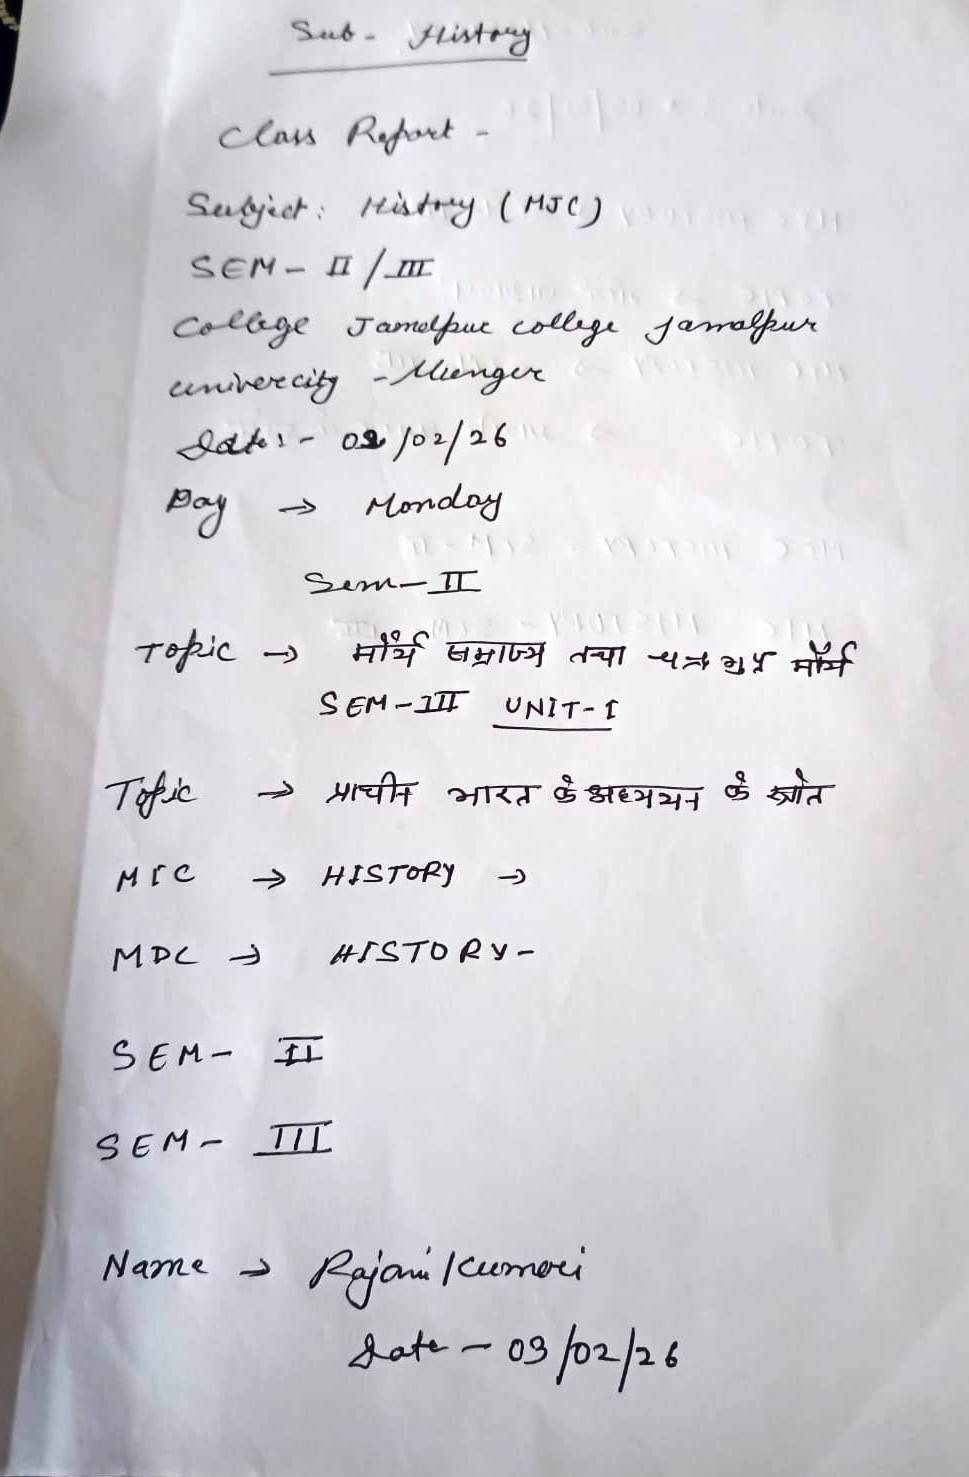 Sub - History
Class Report -
Subject: History (MJC)
SEM - II / III
College Jamalpur college Jamalpur
univercity - Munger
Date:- 02/02/26
Day → Monday
Sem - II
Topic → मौर्य सम्राज्य तथा चन्द्रगुप्त मौर्य
SEM - III UNIT - I
Topic → प्राचीन भारत के अध्ययन के स्त्रोत
MIC → HISTORY →
MDC → HISTORY -
SEM - II
SEM - III
Name → Rajani Kumari
Date - 03/02/26